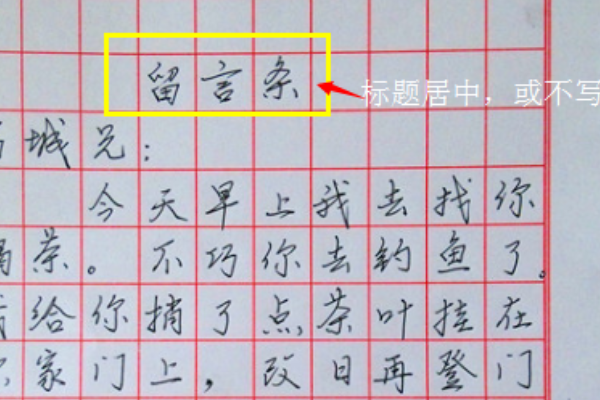 留言条
标题居中，或不写
城兄：
今天早上我去找你
茶。不巧你去钓鱼了。
给你捎了点茶叶挂在
家门上，改日再登门